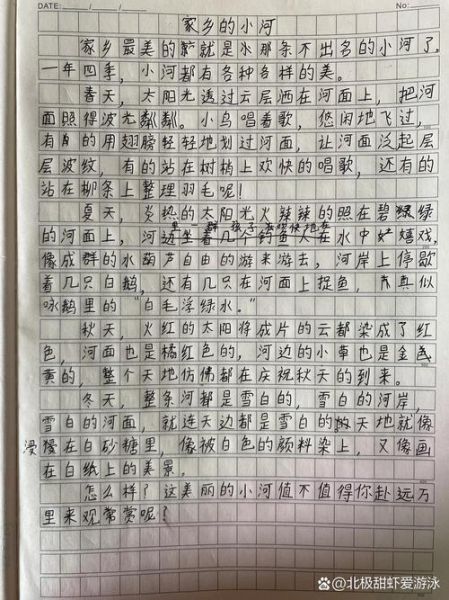 DATE: / /
No:
家乡的小河
家乡最美的就是那条不出名的小河了。
一年四季，小河都有各种各样的美。
春天，太阳光透过云层洒在河面上，把河
面照得波光粼粼。小鸟唱着歌，悠闲地飞过，
有的用翅膀轻轻地划过河面，让河面泛起层
层波纹，有的站在树梢上欢快的唱歌，还有的
站在柳条上整理羽毛呢！
夏天，炎热的太阳光火辣辣的照在碧绿
的河面上，河
水中嬉戏，
像成群的水葫芦自由的游来游去，河岸上停歇
着几只白鹅，还有几只在河面上捉鱼，真似
咏鹅里的“白毛浮绿水。”
秋天，火红的太阳将成片的云都染成了红
色，河面也是橘红色的，河边的小草也是金
黄的，整个天地仿佛都在庆祝秋天的到来。
冬天，整条河都是雪白的，雪白的河岸，
雪白的河面，就连天边都是雪白的天地就像
浸在白砂糖里，像被白色的颜料染上，又像画
在白纸上的美景。
怎么样？这美丽的小河值不值得你赴远万
里来观赏呢？
@北极甜虾爱游泳